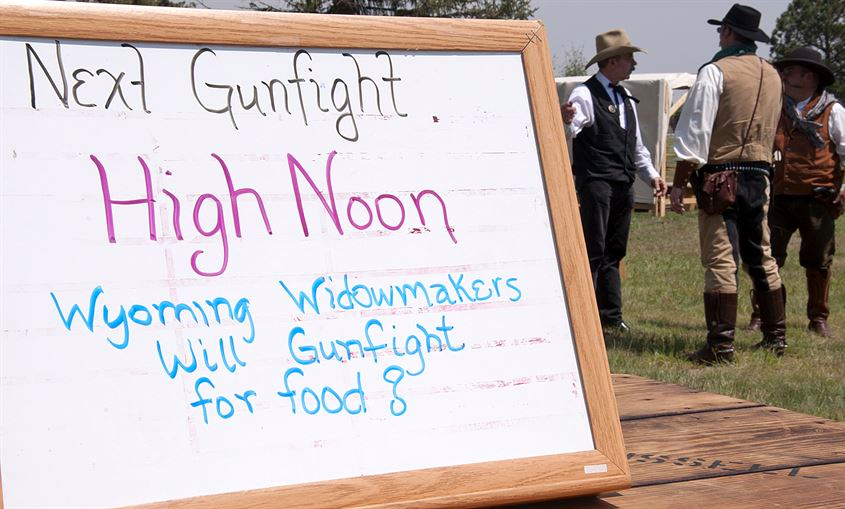 Next Gunfight
High Noon
Wyoming Widowmakers
Will Gunfight
for food!